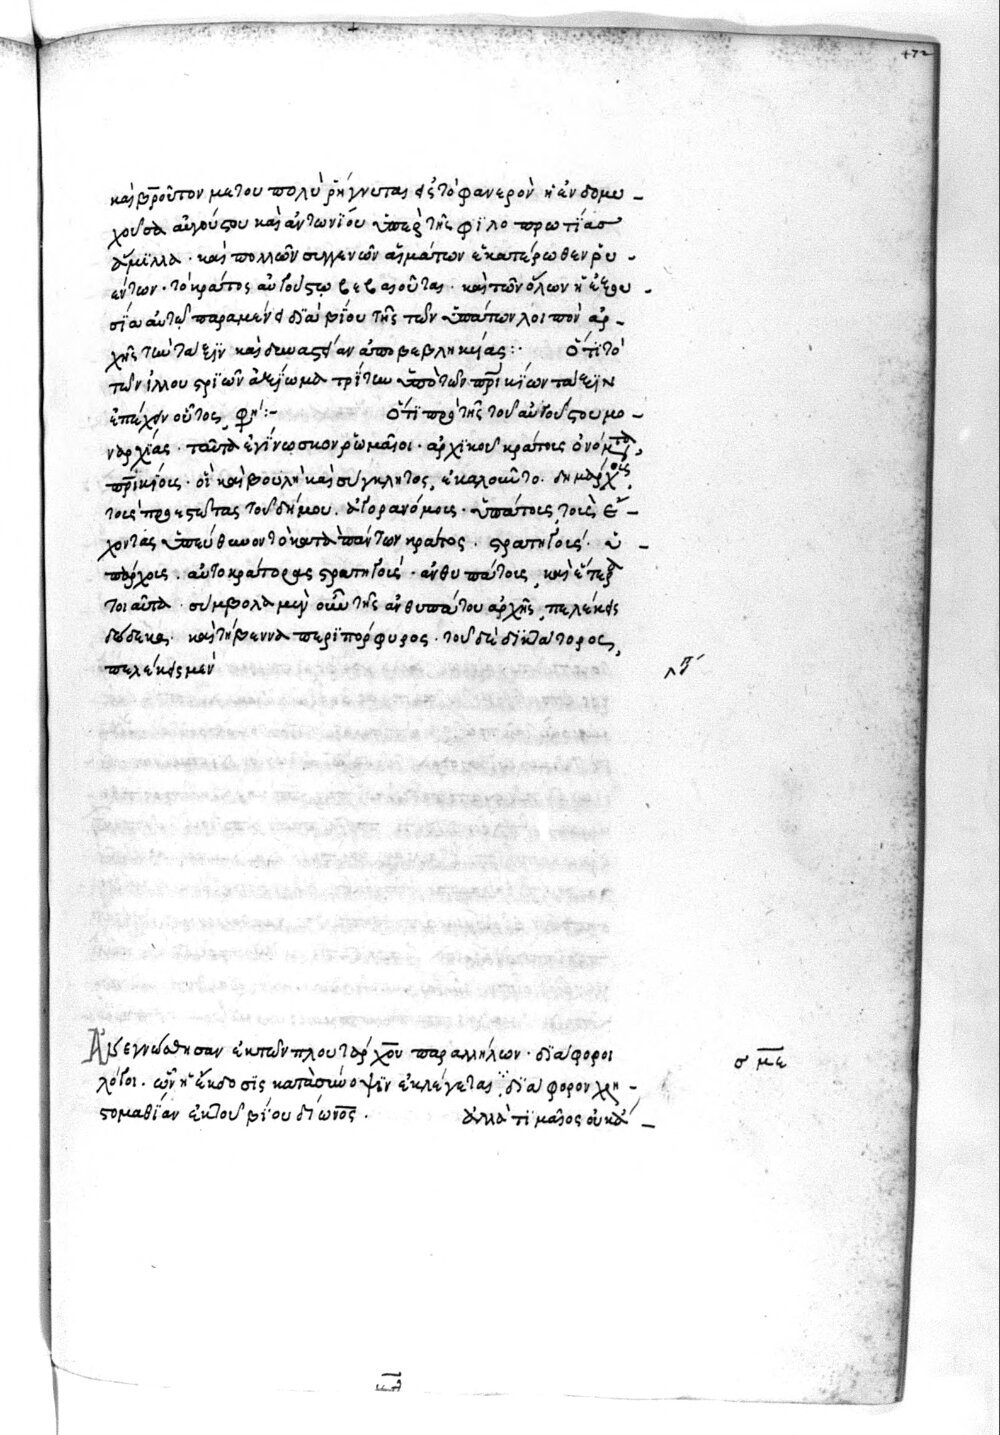 472
καὶ βροῦτον μετ' οὐ πολὺ ῥήγνυται εἰς τὸ φανερὸν ἡ ἐνδομυ-
χοῦσα αὐγούστου καὶ ἀντωνίου ὑπὲρ τῆς φιλοπρωτίας
ἅμιλλα· καὶ πολλῶν συγγενῶν αἱμάτων ἑκατέρωθεν ῥυ-
έντων· τὸ κράτος αὐγούστῳ βεβαιοῦται· καὶ τῶν ὅλων ἡ ἐξου-
σία αὐτῷ παραμένει διὰ βίου τῆς τῶν ὑπάτων λοιπὸν ἀρ-
χῆς τὴν τάξιν καὶ δυναστείαν ἀποβεβληκυίας:· Ὅτι τὸ
τῶν ἰλλουστρίων ἀξίωμα τρίτην ὑπὸ τῶν πατρικίων τάξιν
ἐπέχειν οὗτος φησί:- Ὅτι πρὸ τῆς τοῦ αὐγούστου μο-
ναρχίας· ταῦτα ἐγίνωσκον ῥωμαῖοι· ἀρχικοῦ κράτους ὀνόματα,
πατρικίους· οἳ καὶ βουλὴ καὶ σύγκλητος, ἐκαλοῦντο· δημάρχους
τοὺς προεστῶτας τοῦ δήμου. ἀγορανόμους· ὑπάτους, τοὺς ἔ-
χοντας ὑπεύθυνον τὸ κατὰ πάντων κράτος. στρατηγοὺς· ὑ-
πάρχους. αὐτοκράτορας στρατηγοὺς· ἀνθυπάτους, καὶ ἕτερα
τοιαῦτα· σύμβολα μὲν οὖν τῆς ἀνθυπάτου ἀρχῆς, πελέκεις
δώδεκα· καὶ τήβεννα περιπόρφυρος· τοῦ δὲ δικτάτορος,
πελέκεις μὲν
Ἀνεγνώσθησαν ἐκ τῶν πλουτάρχου παραλλήλων· διάφοροι σμε
λόγοι. ὧν ἡ ἔκδοσις κατὰ σύνοψιν ἐκλέγεται διάφορον χρη-
στομαθίαν ἐκ τοῦ βίου δίωνος· ἀλλὰ τίμαιος οὐκ ἀ-